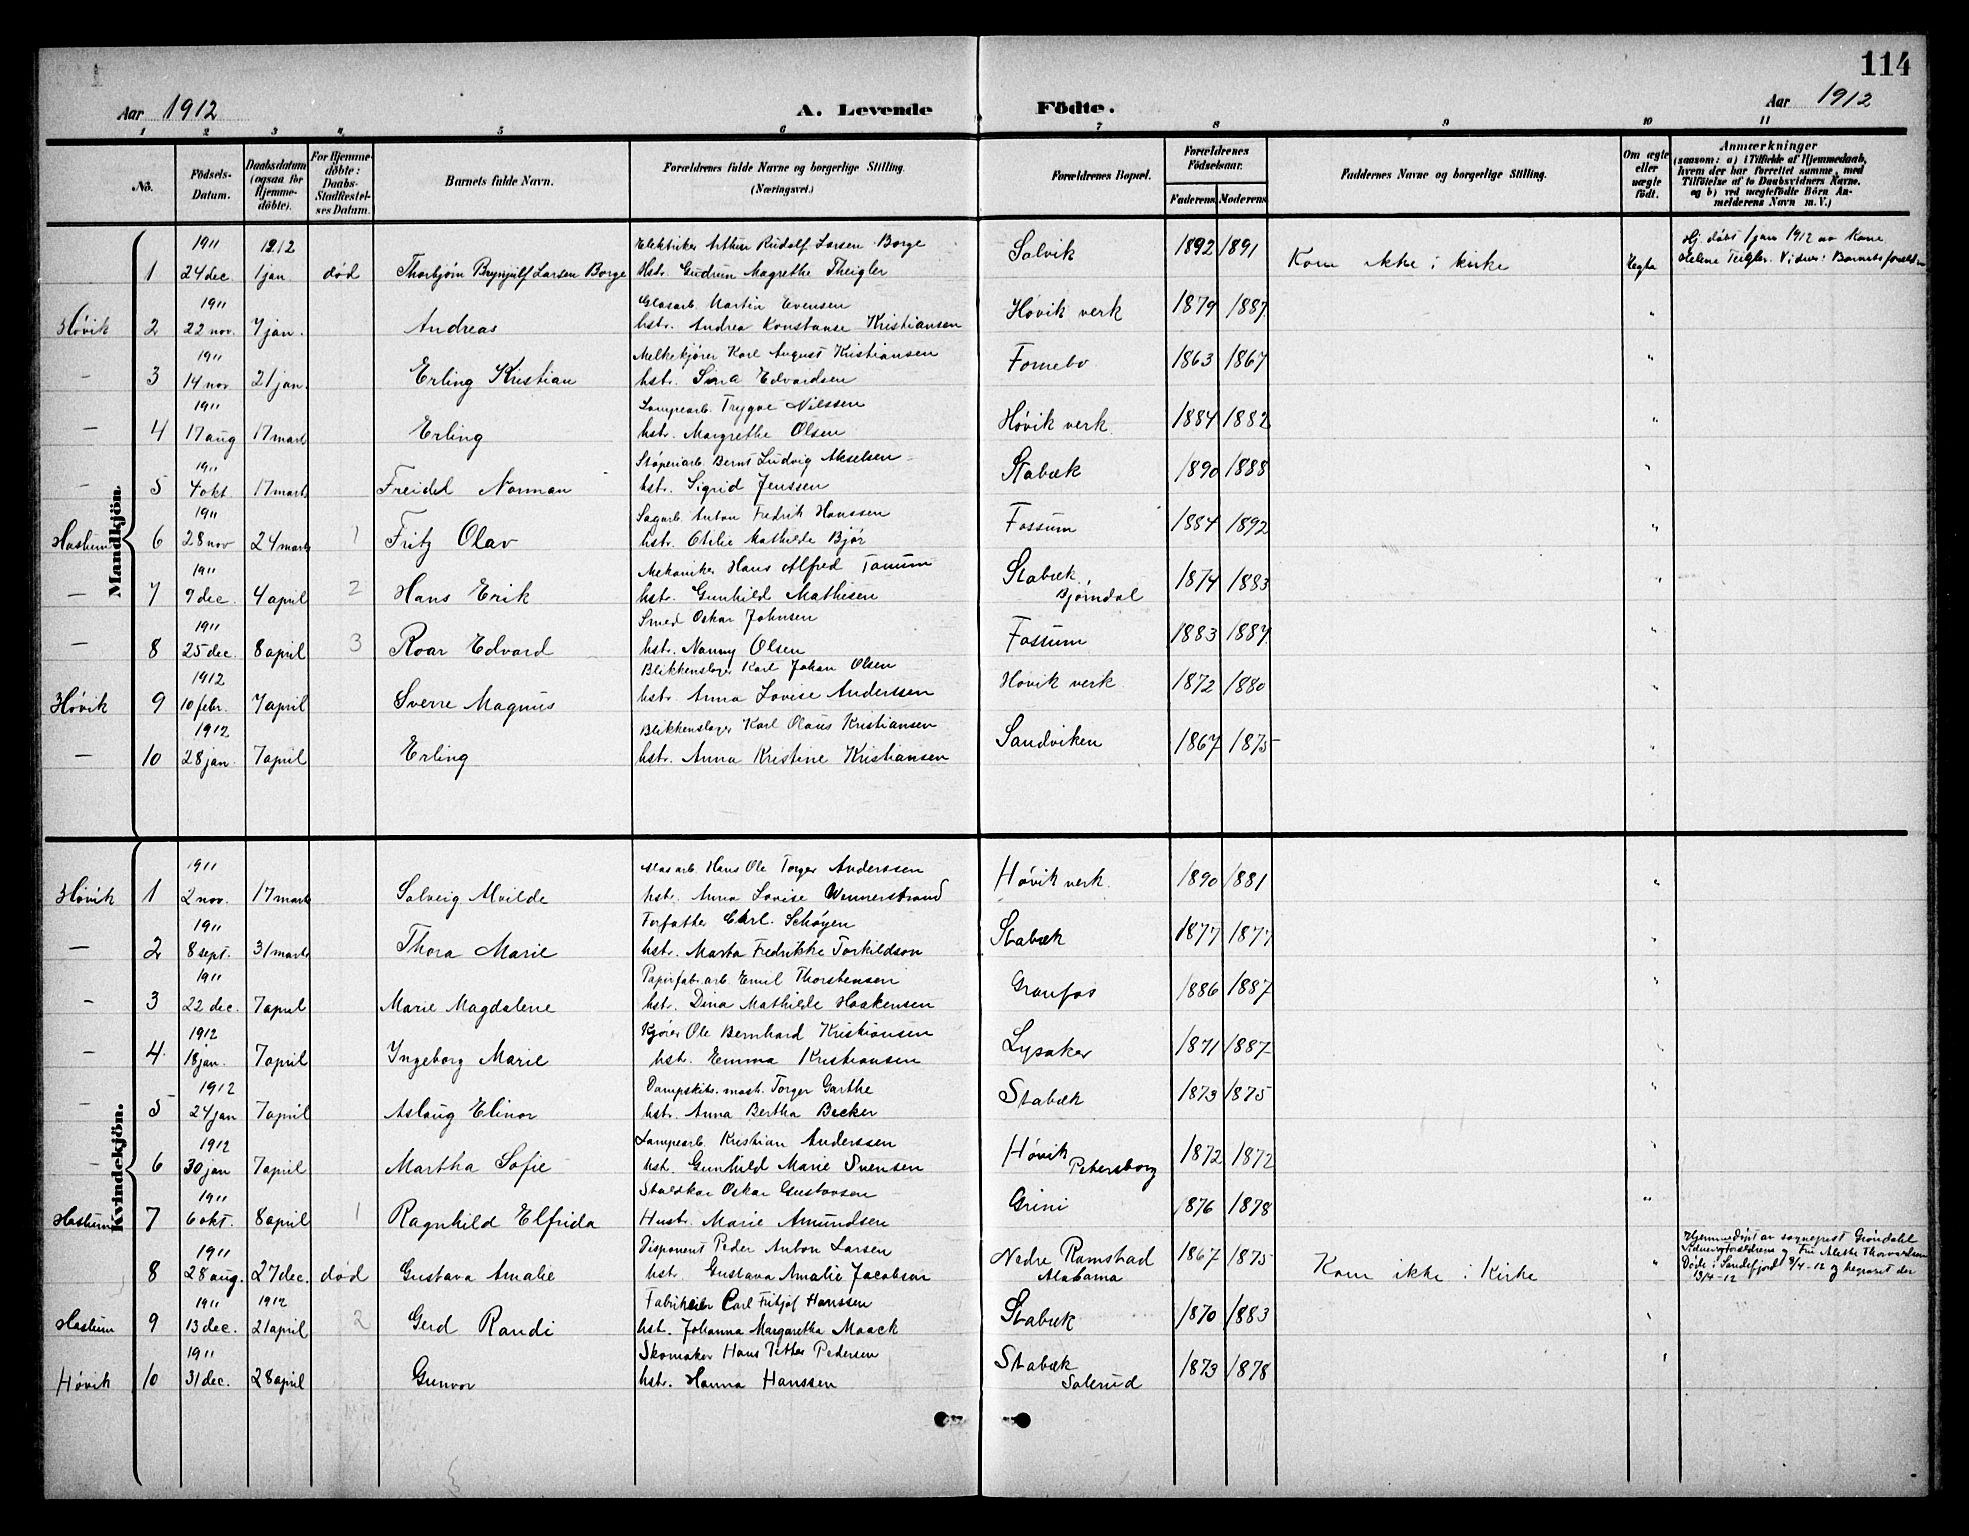 114
Aar 1912 A. Levende Födte. Aar 1912
1 2 3 4 5 6 7 8 9 10 11
No. Födsels-Datum. Daabsdatum (ogsaa for Hjemme-döbte). For Hjemme-döbte: Daabs-Stadfæstel-ses Datum. Barnets fulde Navn. Forældrenes fulde Navne og borgerlige Stilling. (Næringsvei.) Forældrenes Bopæl. Forældrenes Födselsaar. Faderens Moderens Faddernes Navne og borgerlige Stilling. Om ægte eller uægte födt. Anmærkninger (saasom: a) i Tilfælde af Hjemmedaab, hvem der har forrettet samme, med Tilföielse af to Daabsvidners Navne. og b) ved uægtefödte Börn An-melderens Navn m. V.)
Mandkjön.
1911 1912 Elektriker Arthur Rudolf Larsen Borge Solvik 1892 1891 Hj. døbt 1 jan 1912 av Kone
1 24 dec. 1 jan død Thorbjørn Brynjulf Larsen Borge Hstr. Gudrun Magrethe Theigler Kom ikke i kirke Helene Teigler.
1911 Glasarb. Martin Evensen Høvik verk 1879 1887 "
Høvik 2 22 nov. 7 jan. Andreas hstr. Andrea Konstanse Kristiansen
1911 Melkekjører Karl August Kristiansen Fornebo 1863 1867 "
— 3 14 nov 21 jan. Erling Kristian hstr. Sina Edvardsen
1911 Lampearb. Trygve Nilssen Høvik verk 1884 1882 "
— 4 17 aug 17 marts Erling hstr. Margrethe Olsen
1911 Støperiarb. Bernt Ludvig Akselsen Stabæk 1890 1888 "
— 5 4 okt. 17 marts Freidel Norman hstr. Sigrid Jenssen
1911 Sagarb. Anton Fredrik Hanssen Fossum 1884 1892 "
Haslum 6 28 nov 24 marts 1 Fritz Olav hstr. Otilie Mathilde Bjør
1911 Mekaniker Hans Alfred Tanum Stabæk 1874 1883 "
— 7 9 dec. 4 april 2 Hans Erik hstr. Gunhild Mathisen Bjørndal
1911 Smed Oskar Johnsen Fossum 1883 1887 "
— 8 25 dec. 8 april 3 Roar Edvard hstr. Nanny Olsen
1912 Blikkenslager Karl Johan Olsen Høvik verk 1872 1880 "
Høvik 9 10 febr. 7 april Sverre Magnus hstr. Anna Lovise Anderssen
1912 Blikkenslager Karl Olaus Kristiansen Sandviken 1867 1875 "
— 10 28 jan. 7 april Erling hstr. Anna Kristine Kristiansen
Kvindekjön.
1911 Glasarb. Hans Ole Torger Anderssen Høvik verk. 1890 1881 "
Høvik 1 2 nov. 17 marts Solveig Alvilde hstr. Anna Lovise Wennerstrand
1911 Carl. Schøyen Stabæk 1877 1877 "
— 2 8 sept. 31 marts Thora Marie hstr. Marta Fredrikke Torkildson
1911 Papirfabr.arb. Emil Thorstensen Granfos 1886 1887 "
— 3 22 dec. 7 april Marie Magdalene hst. Dina Mathilde Haakensen
1912 Kjører Ole Bernhard Kristiansen Lysaker 1871 1887 "
— 4 18 jan. 7 april Ingeborg Marie hst. Emma Kristiansen
1912 Dampskibs. mask. Torger Garthe Stabæk 1873 1875 "
— 5 24 jan 7 april Aslaug Elinor hst. Anna Bertha Becker
1912 Lampearb. Kristian Anderssen Høvik 1872 1872 "
— 6 30 jan 7 april Martha Sofie hst. Gunhild Marie Svensen Petersborg
1911 Staldkar Oskar Gustavsen Grini 1876 1878 "
Haslum 7 6 okt. 8 april 1 Ragnhild Elfrida Hustr. Marie Amundsen
1911 Disponent Peder Anton Larsen Nedre Ramstad 1867 1875 " Hjemmedøpt av sognepr. Grøndahl
8 28 aug. 27 dec. død Gustava Amalie hst. Gustava Amalie Jacobsen Alabama Kom ikke i Kirke Fru Alette Thorvardsen
Døde i Sandefjord 9/4-12 og begravet der
13/4-12
1911 1912 Fabrikeier Carl Fritjof Hanssen Stabæk 1870 1883 "
Haslum 9 13 dec. 21 april 2 Gerd Randi hst. Johanna Margaretha Maack
1911 Skomaker Hans Petter Pedersen Stabæk 1873 1878 "
Høvik 10 31 dec. 28 april Gunvor hstr. Hanna Hanssen Solerud